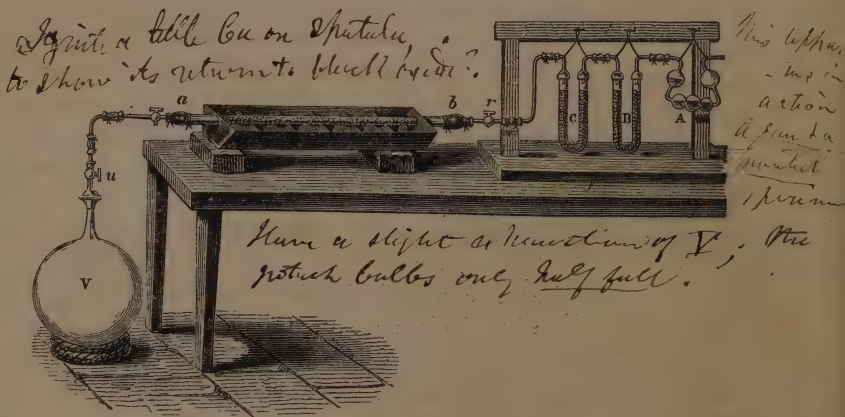 Ignite a little Cu on spatula,
to show its return to black oxide?
This appar
- tus in
action
A funda
mental
a
b
r
C
B
A
u
V
Have a slight exhaustion of V; the
potash bulbs only half full.